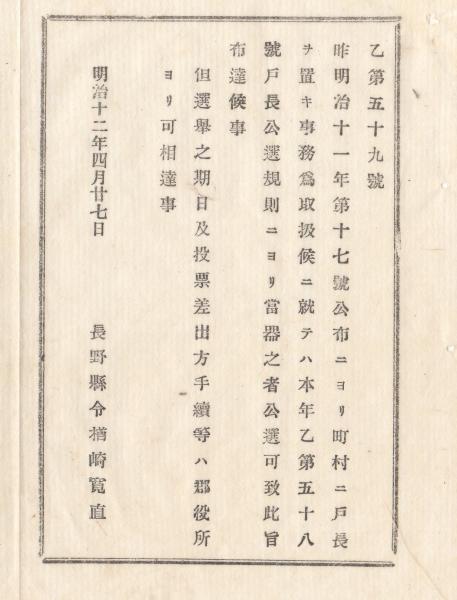 乙第五十九號
昨明治十一年第十七號公布ニヨリ町村ニ戸長
ヲ置キ事務爲取扱候ニ就テハ本年乙第五十八
號戸長公選規則ニヨリ當器之者公選可致此旨
布達候事
但選擧之期日及投票差出方手續等ハ郡役所
ヨリ可相達事
明治十二年四月廿七日
長野縣令楢崎寛直